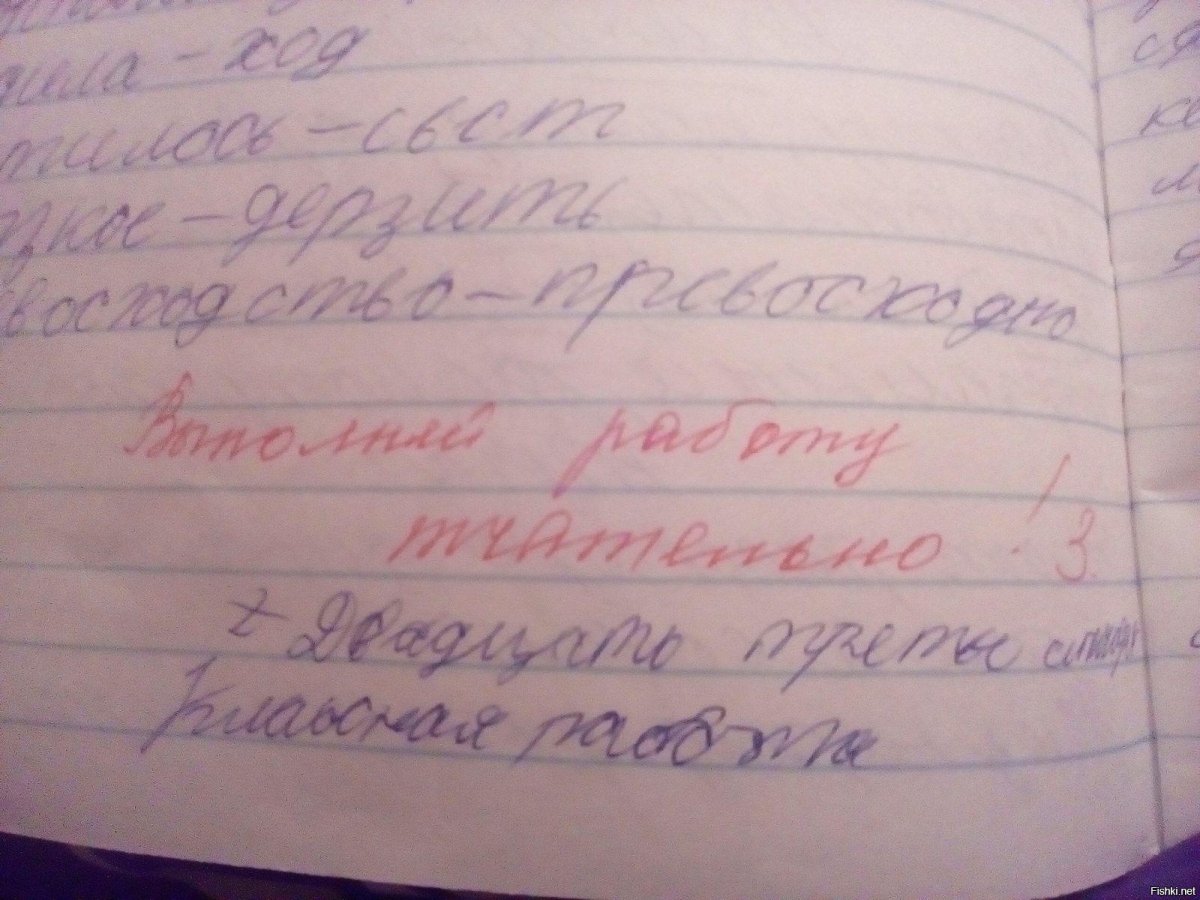 дила - ход
тилось - свет
зкое - дерзить
восходство - превосходно
Выполняй работу
тчательно! 3.
Двадцать третье
Классная работа
Fishki.net